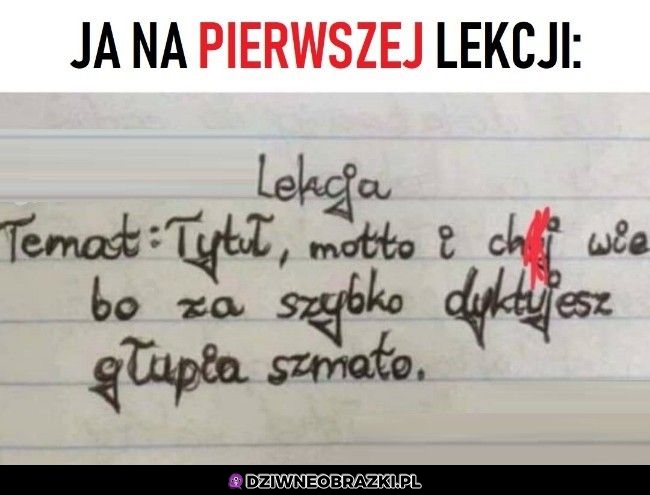 JA NA PIERWSZEJ LEKCJI:
Lekcja
Temat: Tytuł, motto i ch j wie
bo za szybko dyktujesz
głupia szmato.
DZIWNEOBRAZKI.PL